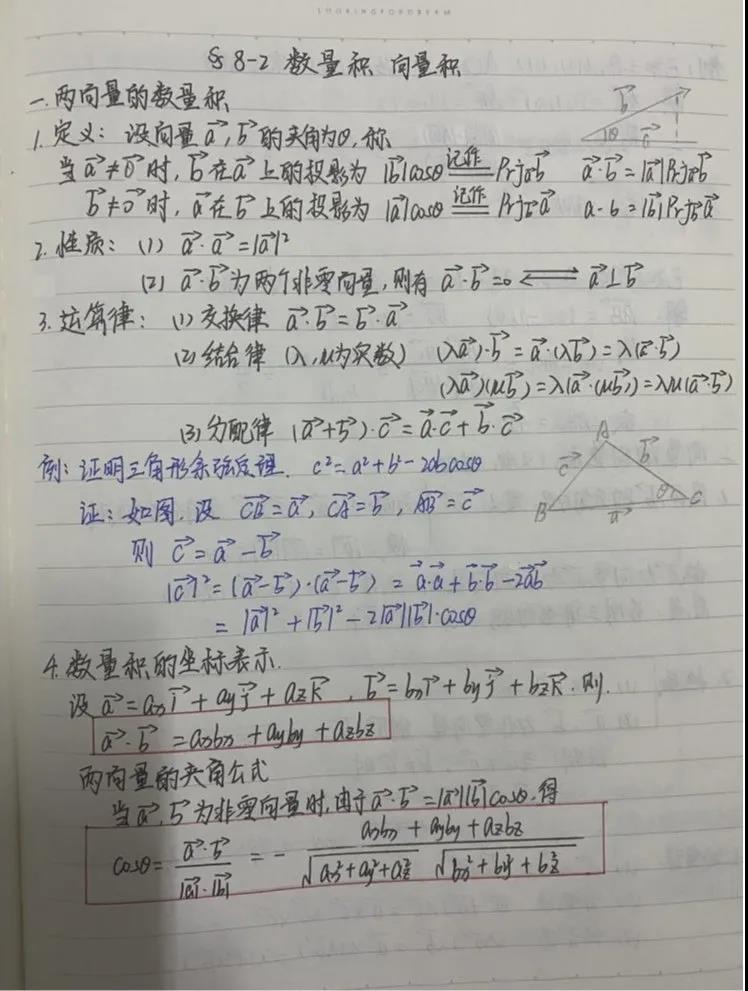 LOOKINGFORDREAM
§ 8-2 数量积 向量积
一.两向量的数量积
1. 定义: 设向量 a⃗, b⃗ 的夹角为θ, 称
b⃗
θ
当 a⃗ ≠ 0⃗ 时, b⃗ 在 a⃗ 上的投影为 |b⃗|cosθ 记作 Prja⃗b⃗ a⃗·b⃗ = |a⃗|Prja⃗b⃗
b⃗ ≠ 0⃗ 时, a⃗ 在 b⃗ 上的投影为 |a⃗|cosθ 记作 Prjb⃗a⃗ a·b = |b⃗|Prjb⃗a⃗
2. 性质: (1) a⃗·a⃗ = |a⃗|²
(2) a⃗·b⃗ 为两个非零向量, 则有 a⃗·b⃗ = 0 ⟺ a⃗⊥b⃗
3. 运算律: (1) 交换律 a⃗·b⃗ = b⃗·a⃗
(2) 结合律 (λ, μ为实数) (λa⃗)·b⃗ = a⃗·(λb⃗) = λ(a⃗·b⃗)
(λa⃗)(μb⃗) = λ(a⃗·(μb⃗)) = λμ(a⃗·b⃗)
(3) 分配律 (a⃗+b⃗)·c⃗ = a⃗·c⃗ + b⃗·c⃗
例: 证明三角形余弦定理. c² = a² + b² - 2abcosθ
A
c⃗ b⃗
B a⃗ θ C
证: 如图, 设 CB⃗ = a⃗, CA⃗ = b⃗, AB⃗ = c⃗
则 c⃗ = a⃗ - b⃗
|c⃗|² = (a⃗-b⃗)·(a⃗-b⃗) = a⃗·a⃗ + b⃗·b⃗ - 2a⃗b⃗
= |a⃗|² + |b⃗|² - 2|a⃗||b⃗|·cosθ
4. 数量积的坐标表示.
设 a⃗ = axi⃗ + ayj⃗ + azk⃗, b⃗ = bxi⃗ + byj⃗ + bzk⃗. 则.
a⃗·b⃗ = axbx + ayby + azbz
两向量的夹角公式
当 a⃗, b⃗ 为非零向量时, 由于 a⃗·b⃗ = |a⃗||b⃗|cosθ. 得
cosθ = a⃗·b⃗ / |a⃗|·|b⃗| = - axbx + ayby + azbz / √(ax²+ay²+az²) √(bx²+by²+bz²)